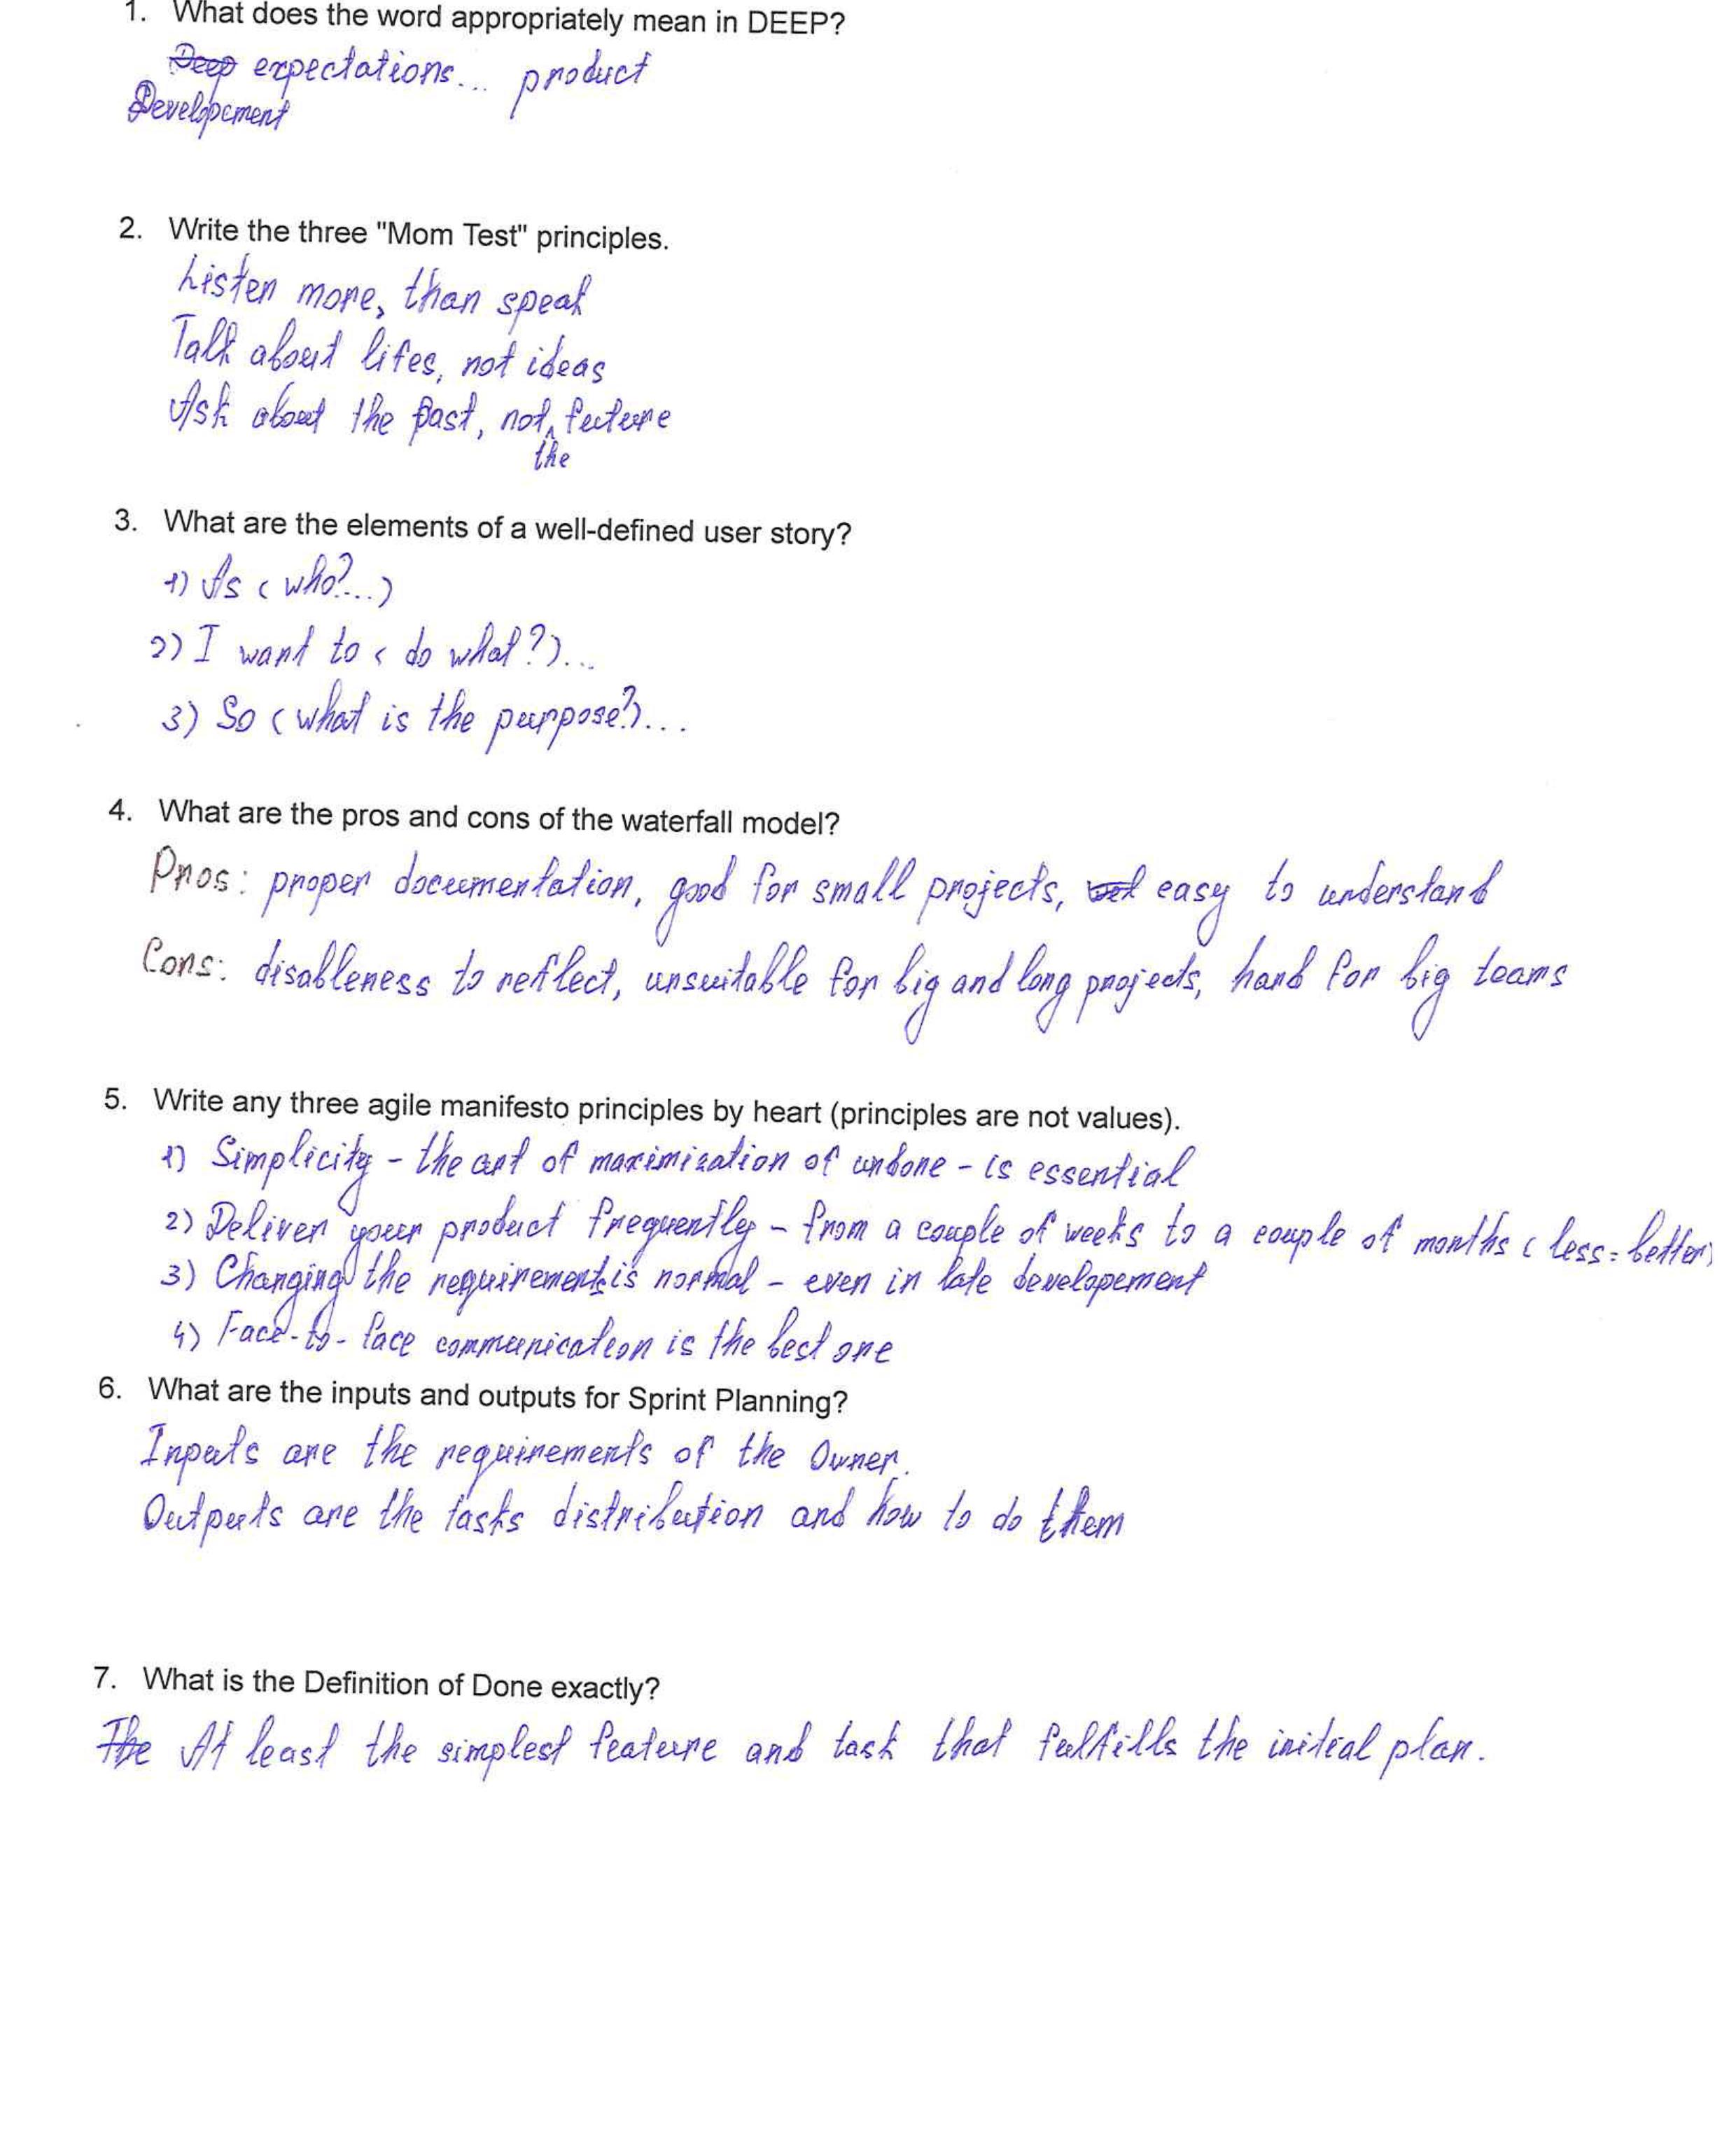 1. What does the word appropriately mean in DEEP?
Deep expectations... product
Developement
2. Write the three "Mom Test" principles.
Listen more, than speak
Talk about lifes, not ideas
Ask about the past, not future
the
3. What are the elements of a well-defined user story?
1) As (who?...)
2) I want to (do what?)...
3) So (what is the purpose?)...
4. What are the pros and cons of the waterfall model?
Pros: proper documentation, good for small projects, easy to understand
Cons: disableness to reflect, unsuitable for big and long projects, hard for big teams
5. Write any three agile manifesto principles by heart (principles are not values).
1) Simplicity - the art of maximization of undone - is essential
2) Deliver your product frequently - from a couple of weeks to a couple of months (less = better)
3) Changing the requirements is normal - even in late developement
4) Face-to-face communication is the best one
6. What are the inputs and outputs for Sprint Planning?
Inputs are the requirements of the Owner.
Outputs are the tasks distribution and how to do them
7. What is the Definition of Done exactly?
The At least the simplest feature and task that fulfills the initial plan.